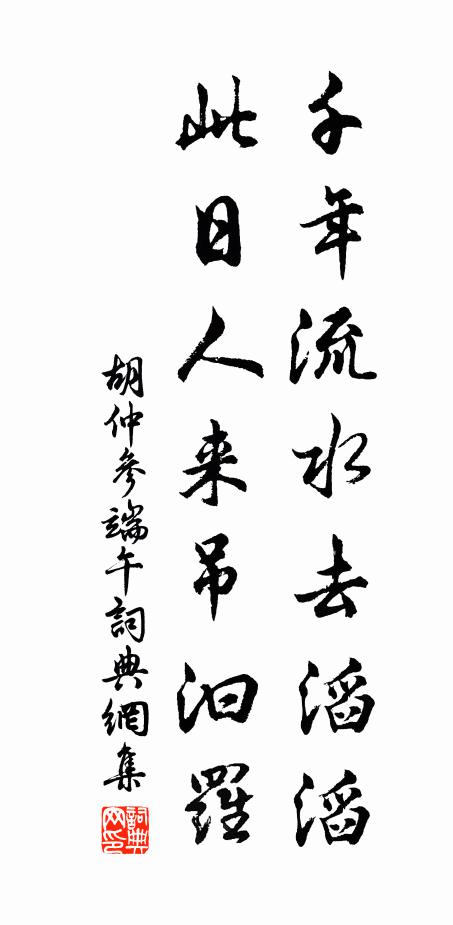 千年流水去滔滔
此日人来吊汨羅
胡仲參端午詞典網集
詞典網印